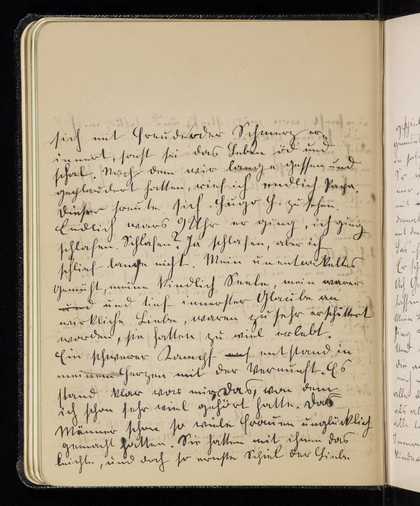 sich mit Freude oder Schmerz er-
innert, sonst sei das Leben öd und
schal. Nach dem wir lange gessen und
geplaudert hatten, rief ich endlich Papa.
Dieser freute sich Hugo G. zu sehn
Endlich wars 9 Uhr er ging, ich ging
schlafen. Schlafen? Ja schlafen, aber ich
schlief lange nicht. Mein unentwickeltes
Gemüht, meine kindlich Seele, mein warer
und und tief innerster Glaube an
wirkliche Liebe, waren zu sehr erschüttert
worden, sie hatten zu viel erlebt.
Ein schwerer Kampf entstand in
meinem Herzen mit der Vernunft. Es
stand klar vor mir, das, von dem
ich schon sehr viel gehört hatte. Das
Männer schon so viele Frauen unglücklich
gemacht hatten. Sie hatten mit ihnen das
leichte, und doch so ernste Spiel der Liebe